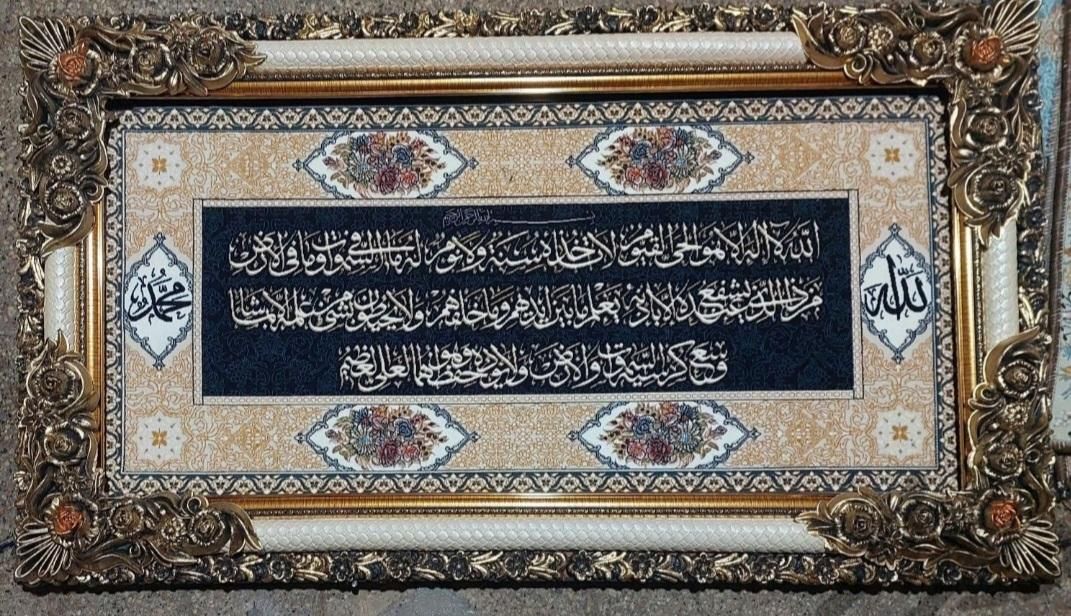 بسم الله الرحمن الرحیم
الله لا اله الا هو الحی القیوم لا تاخذه سنة ولا نوم له ما فی السموات وما فی الارض
من ذا الذی یشفع عنده الا باذنه یعلم ما بین ایدیهم وما خلفهم ولا یحیطون بشئ من علمه الا بما شاء
وسع کرسیه السموات والارض ولا یؤده حفظهما وهو العلی العظیم
الله
محمد